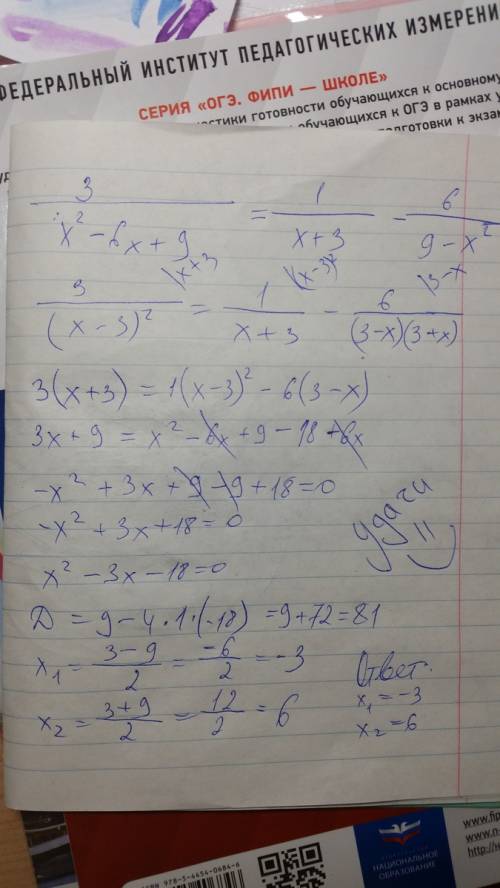 ФЕДЕРАЛЬНЫЙ ИНСТИТУТ ПЕДАГОГИЧЕСКИХ ИЗМЕРЕНИ
СЕРИЯ «ОГЭ. ФИПИ — ШКОЛЕ»
остики готовности обучающихся к основному
обучающихся к ОГЭ в рамках у
подготовки к экза
3/(x² - 6x + 9) = 1/(x + 3) - 6/(9 - x²)
3/(x - 3)² \x+3 = 1/(x + 3) \(x-3)² - 6/((3-x)(3+x)) \3-x
3(x+3) = 1(x-3)² - 6(3-x)
3x + 9 = x² - 6x + 9 - 18 + 6x
-x² + 3x + 9 - 9 + 18 = 0
-x² + 3x + 18 = 0
x² - 3x - 18 = 0
удачи =)
D = 9 - 4·1·(-18) = 9 + 72 = 81
x₁ = (3-9)/2 = -6/2 = -3
x₂ = (3+9)/2 = 12/2 = 6
Ответ:
x₁ = -3
x₂ = 6
ISBN 978-5-4454-0684-6
НАЦИОНАЛЬНОЕ
ОБРАЗОВАНИЕ
www.fip
www.n
http://н